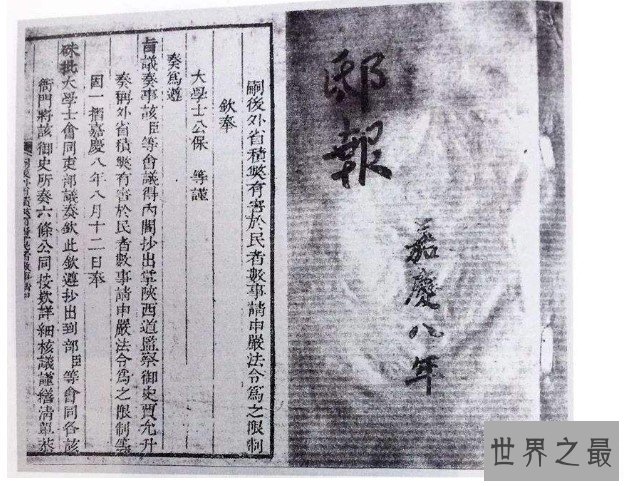 邸報
嘉慶八年
嗣後外省積獘有害於民者數事請申嚴法令爲之限制
欽奉
大學士公保 等謹
奏爲遵
旨議奏事該臣等會議得內閣抄出掌陝西道監察御史賈允升
奏稱外省積獘有害於民者數事請申嚴法令爲之限制等
因一摺嘉慶八年八月十二日奉
硃批大學士會同吏部議奏欽此欽遵抄出到部臣等會同各該
衙門將該御史所奏六條公同按款詳細核議謹繕清單恭
世界之最